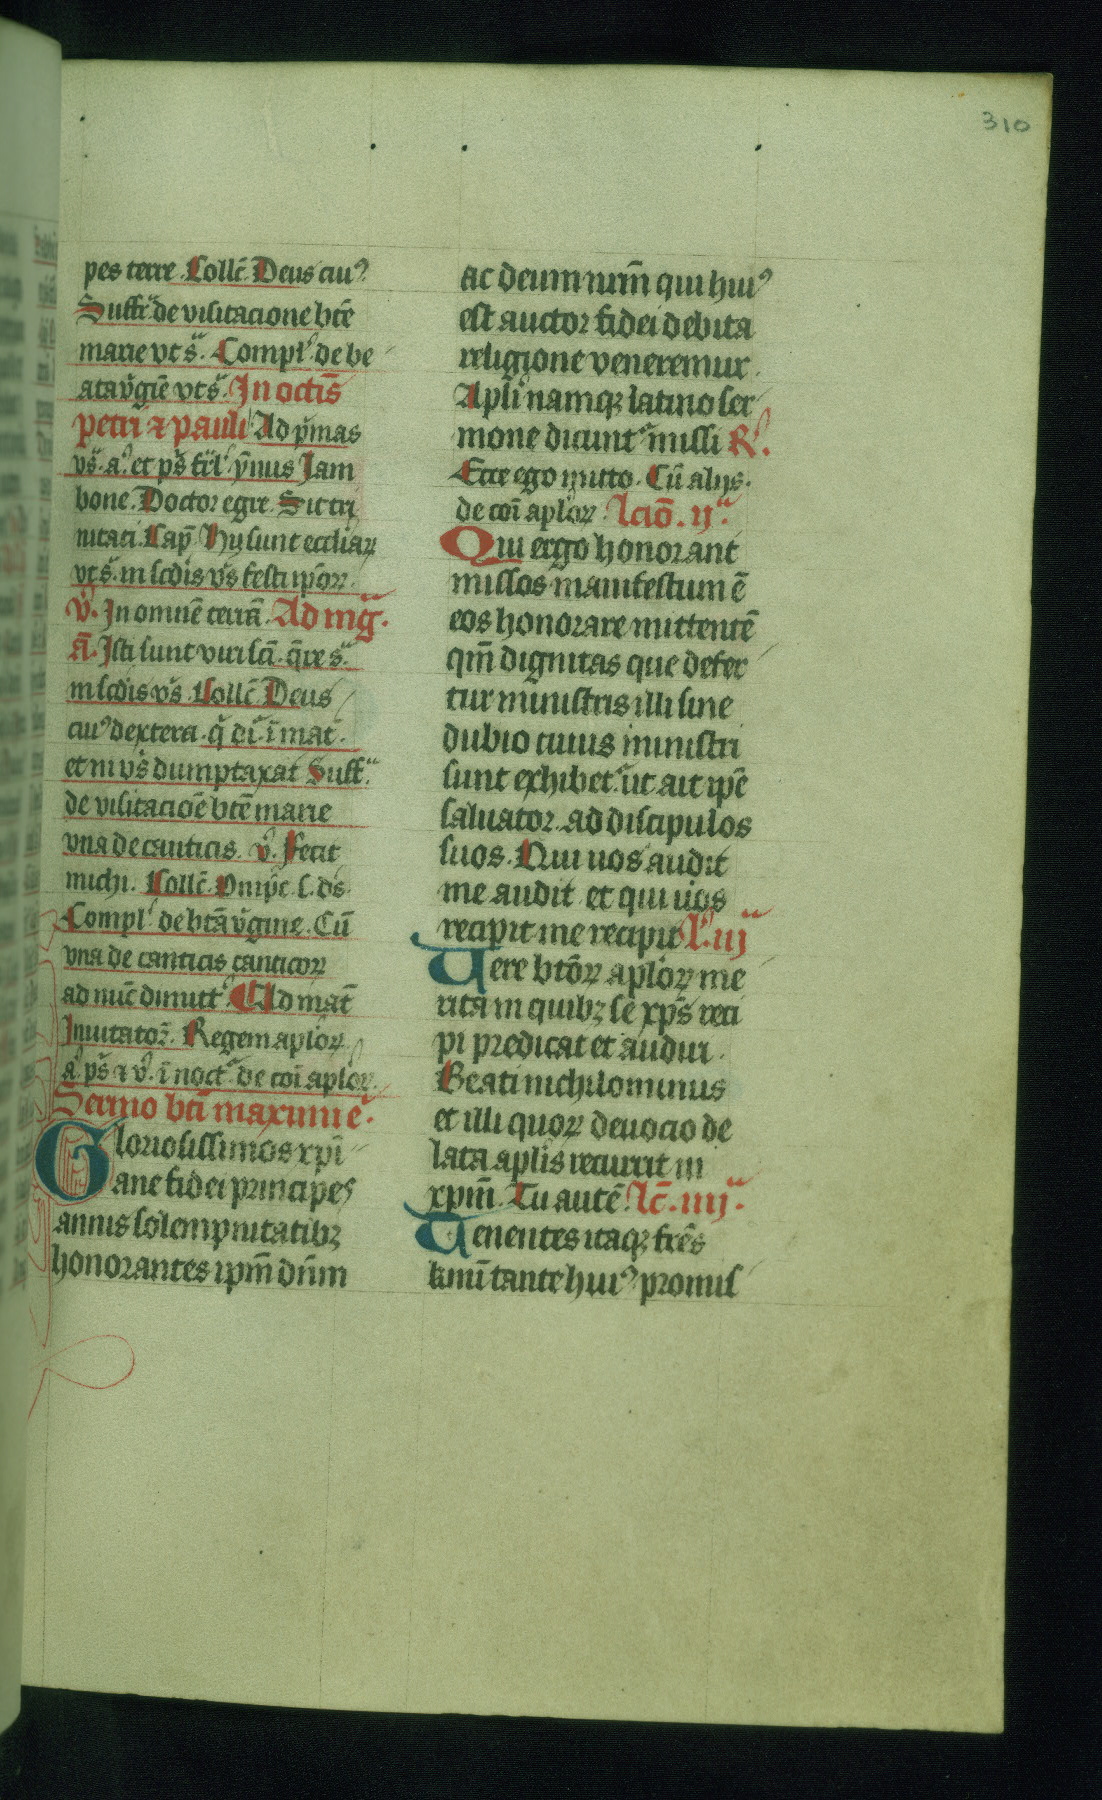 310
pes terre. Collc̄ Deus cuiꝰ
Suffᵃ de visitacione btē
marie vt sᵃ. Complᵗ de be
ata v̾gīe vt sᵃ. In octīs
petri ⁊ pauli Ad p̾mas
vs̄. aᵃ et ps̄ fēl ẏmus Iam
bone. Doctor egre. Sit tri
nitati. Cap̄ Hij sunt eccliaꝝ
vt sᵃ. in scdis vs̄ festi ip̄oꝝ.
v̾. In omnē terrā. Ad mḡ.
ā. Isti sunt viri sc̄i. q̄re sᵃ
in scdis vs̄. Collc̄ Deus
cuiꝰ dextera. q̄ dr̄ ī mat̄.
et in vs̄ dumptaxat Suffᵃ
de visitacioē btē marie
vna de canticis. v̾. Fecit
michi. Collc̄. Om̄ip̄c s. ds̄.
Complᵗ de btā v̾gine. Cū
vna de canticis canticoꝝ
ad nūc dimittꝭ Ad mat̄
Inuitatoꝝ. Regem aploꝝ
aᵃ ps̄ ⁊ v̾. ī noctᵒ de cōi aploꝝ.
Sermo bti maximi eᵖ.
Gloriosissimos xp̄i
ane fidei principes
annis solempnitatibꝫ
honorantes ip̄m dn̄m
ac deum nr̄m qui huiꝰ
est auctor fidei debita
religione veneremur.
Apl̄i namqꝫ latino ser
mone dicuntᵘ missi R̾.
Ecce ego mitto. Cū alijs.
de cōi aploꝝ. Lctiō. ijᵃ.
Qui ergo honorant
missos manifestum ē
eos honorare mittentē
qm̄ dignitas que defer
tur ministris illi sine
dubio cuius ministri
sunt exhibetᵘ ut ait ip̄e
saluator ad discipulos
suos. Qui uos audit
me audit et qui uos
recipit me recipit Lᵒ. iijᵃ
Uere btōꝝ aploꝝ me
rita in quibꝫ se xp̄s reci
pi predicat et audiri.
Beati nichilominus
et illi quoꝝ deuocio de
lata aplis recurrit in
xp̄m. Tu autē Lc̄. iiijᵃ.
Tenentes itaqꝫ fr̄es
kmi tante huiꝰ promis